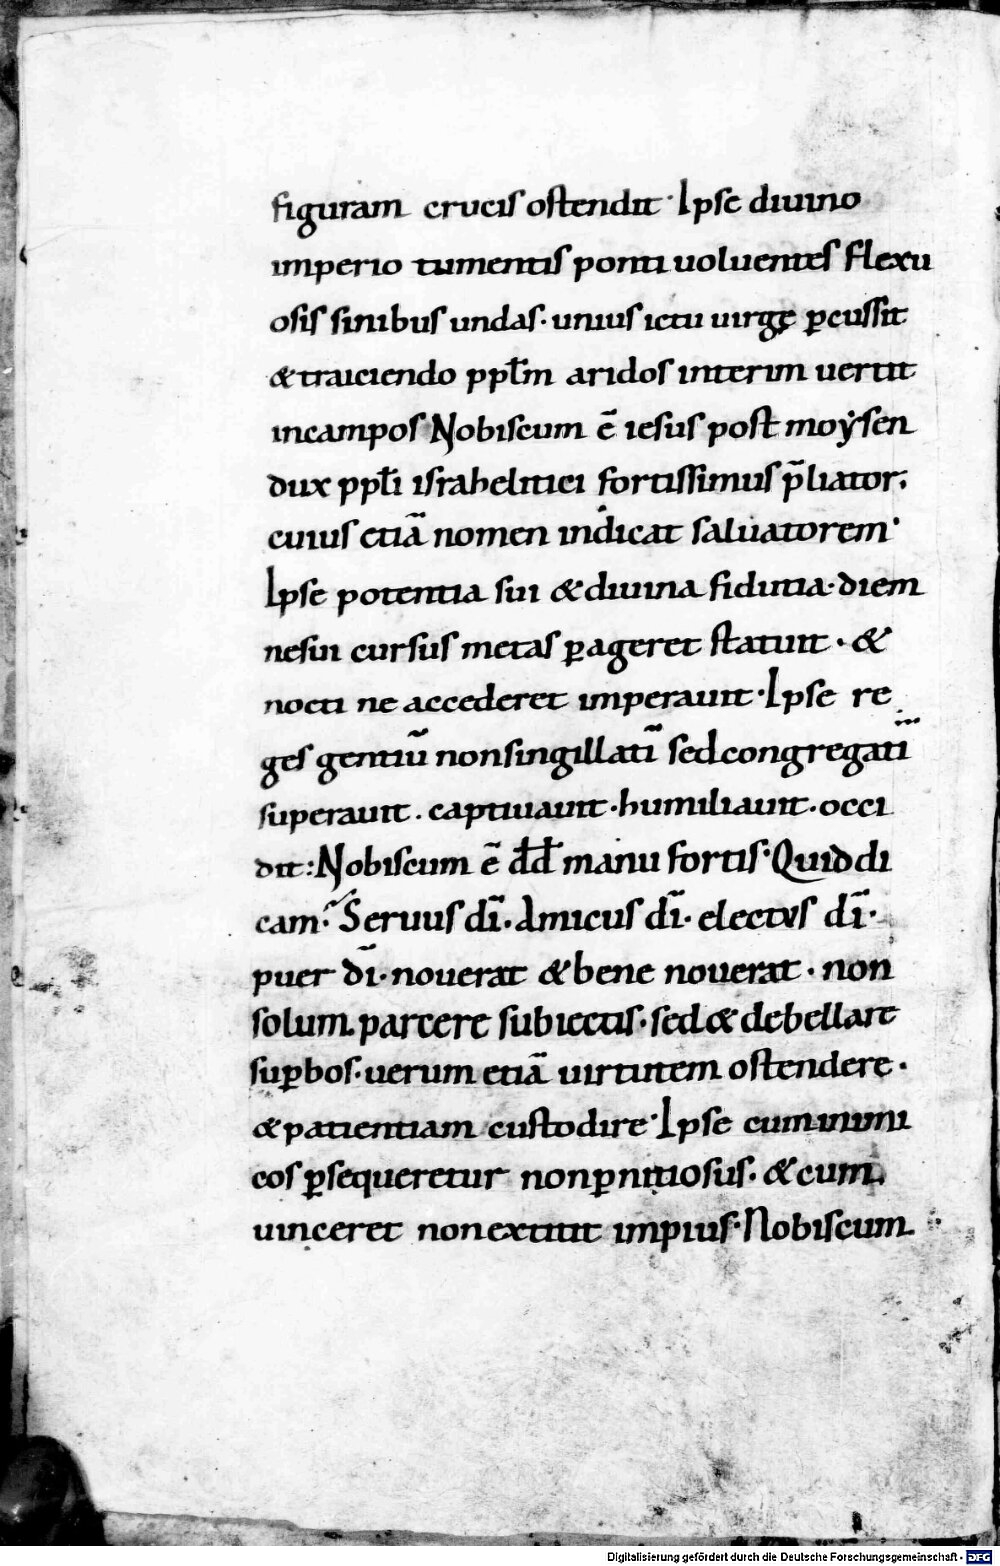 figuram crucis ostendit · Ipse diuino
imperio tumentis ponti uoluentes flexu
osis sinibus undas · unius ictu uirgę p̱cussit
& traiciendo ppl̄m aridos interim uertit
incampos Nobiscum ē iesus post moẏsen
dux ppl̄i israhelitici fortissimus p̄liator;
cuius etiā nomen indicat saluatorem ·
Ipse potentia sui & diuina fidutia · diem
nesui cursus metas p̱ageret statuit · &
nocti ne accederet imperauit · Ipse re
ges gentiū nonsingillatī sed congregatī
superauit . captiuauit · humiliauit · occi
dit : Nobiscum ē dd̄ manu fortis · Quid di
cam · Seruus dī . Amicus dī · electus dī ·
puer dī · nouerat & bene nouerat · non
solum parcere subiectis · sed & debellare
sup̱bos · uerum etiā uirtutem ostendere ·
& patientiam custodire · Ipse cum inimi
cos p̱sequeretur nonp̱nitiosus · & cum
uinceret non extitit impius · Nobiscum
Digitalisierung gefördert durch die Deutsche Forschungsgemeinschaft - DFG